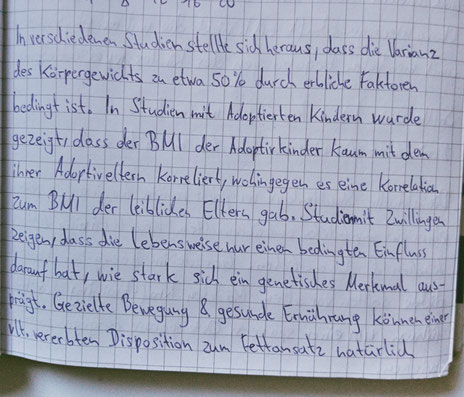 8 12 16 20
In verschiedenen Studien stellte sich heraus, dass die Varianz
des Körpergewichts zu etwa 50% durch erbliche Faktoren
bedingt ist. In Studien mit Adoptierten Kindern wurde
gezeigt, dass der BMI der Adoptivkinder kaum mit dem
ihrer Adoptiveltern korreliert, wohingegen es eine Korrelation
zum BMI der leiblichen Eltern gab. Studien mit Zwillingen
zeigen, dass die Lebensweise nur einen bedingten Einfluss
darauf hat, wie stark sich ein genetisches Merkmal aus-
prägt. Gezielte Bewegung & gesunde Ernährung können einer
vlt. vererbten Disposition zum Fettansatz natürlich